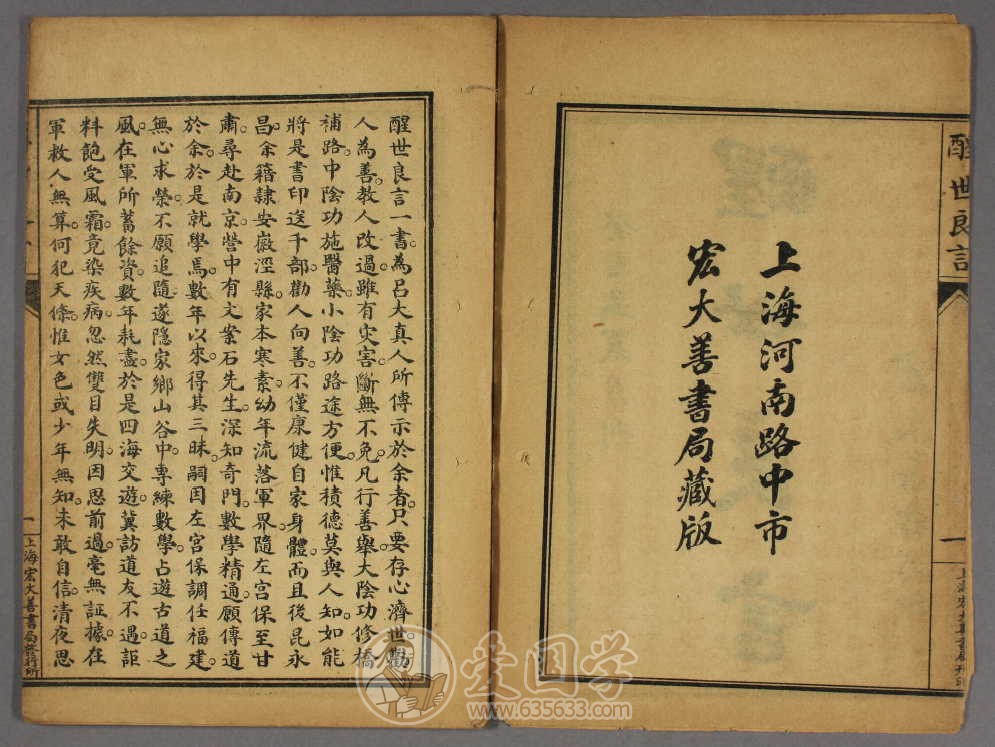 醒世良言
一
上海河南路中市
宏大善書局藏版
醒世良言一書。為呂大真人所傳示於余者。只要存心濟世。勸
人為善。教人改過。雖有灾害。斷無不免。凡行善舉。大陰功修橋
補路。中陰功施醫藥。小陰功路途方便。惟積德莫與人知。如能
將是書印送千部。勸人向善。不僅康健自家身體。而且後昆永
昌。余籍隸安徽涇縣。家本寒素。幼年流落軍界。隨左宮保至甘
肅。尋赴南京。營中有文案石先生。深知奇門。數學精通。願傳道
於余。於是就學焉。數年以來。得其三昧。嗣因左宮保調任福建。
無心求榮。不願追隨。遂隱家鄉山谷中。專練數學。占遊古道之
風。在軍所蓄餘資。數年耗盡。於是四海交遊。冀訪道友不遇。詎
料飽受風霜。竟染疾病。忽然雙目失明。因思前過。毫無証據。在
軍救人無算。何犯天條。惟女色或少年無知。未敢自信。清夜思
一
上海宏大善書局發行所
爱国学
www.635633.com